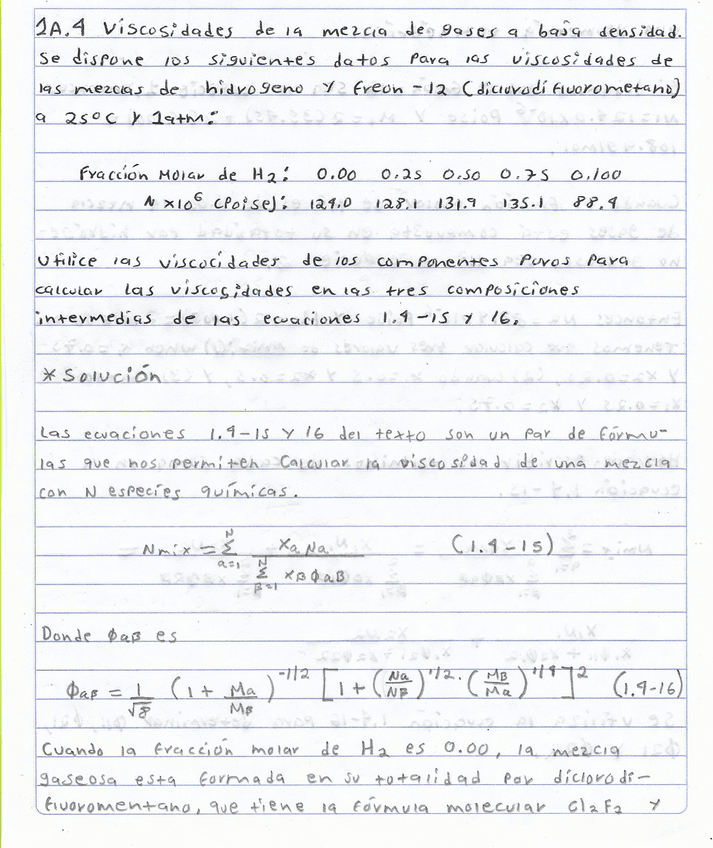 1A.4 Viscosidades de la mezcla de gases a baja densidad.
Se dispone los siguientes datos para las viscosidades de
las mezclas de hidrogeno y freon-12 (diclorodifluorometano)
a 25°C y 1atm:
Fracción Molar de H2: 0.00 0.25 0.50 0.75 0.100
N x10^6 (Poise): 124.0 128.1 131.9 135.1 88.4
Utilice las viscocidades de los componentes puros para
calcular las viscosidades en las tres composiciones
intermedias de las ecuaciones 1.4-15 y 16.
*Solución
Las ecuaciones 1.4-15 y 16 del texto son un par de fórmu-
las que nos permiten calcular la viscosidad de una mezcla
con N especies químicas.
Nmix = Σ(a=1, N) XaNa / Σ(β=1, N) XβΦaβ (1.4-15)
Donde Φaβ es
Φaβ = 1/√8 (1 + Ma/Mβ)^-1/2 [1 + (Na/Nβ)^1/2 · (Mβ/Ma)^1/4]^2 (1.4-16)
Cuando la fracción molar de H2 es 0.00, la mezcla
gaseosa esta formada en su totalidad por diclorodi-
fluoromentano, que tiene la fórmula molecular Cl2F2 y